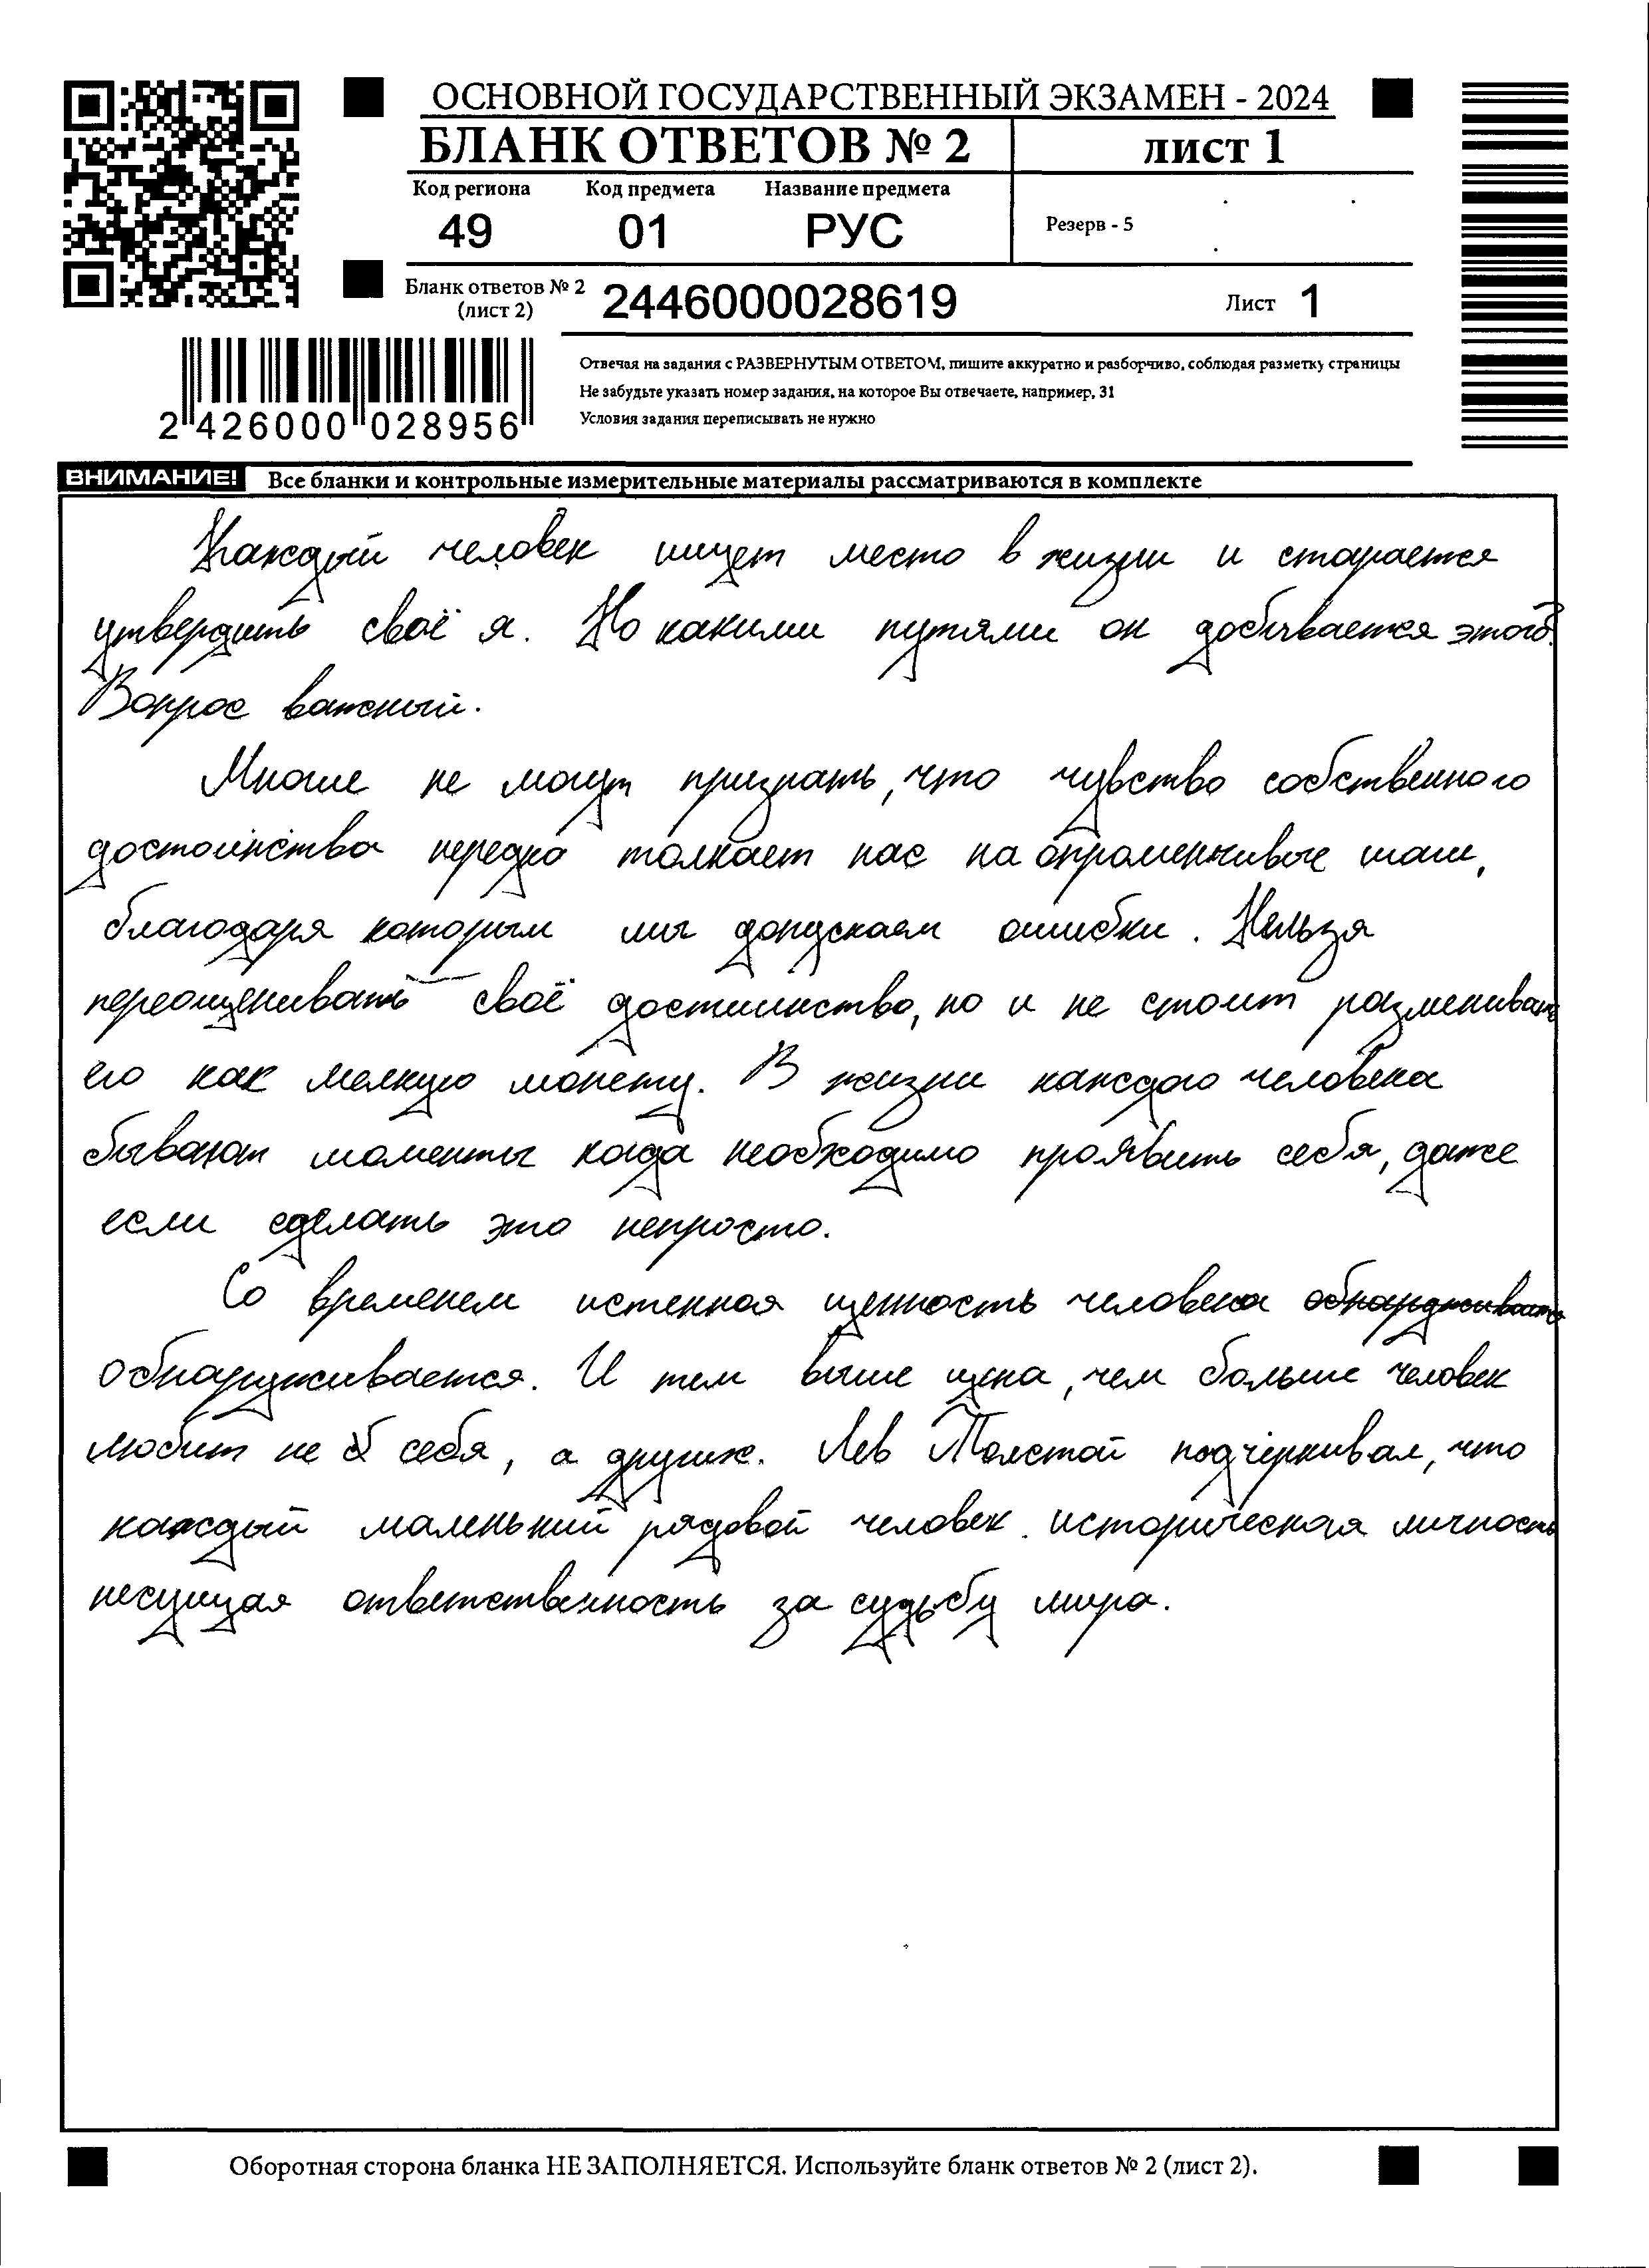 ОСНОВНОЙ ГОСУДАРСТВЕННЫЙ ЭКЗАМЕН - 2024
БЛАНК ОТВЕТОВ № 2
ЛИСТ 1
Код региона Код предмета Название предмета
49 01 РУС
Резерв - 5
Бланк ответов № 2
(лист 2)
2446000028619
Лист 1
2 426000 028956
Отвечая на задания с РАЗВЕРНУТЫМ ОТВЕТОМ, пишите аккуратно и разборчиво, соблюдая разметку страницы
Не забудьте указать номер задания, на которое Вы отвечаете, например, 31
Условия задания переписывать не нужно
ВНИМАНИЕ! Все бланки и контрольные измерительные материалы рассматриваются в комплекте
Каждый человек ищет место в жизни и старается
утвердить своё я. Но какими путями он добивается этого?
Вопрос важный.
Многие не могут признать, что чувство собственного
достоинства нередко толкает нас на опрометчивые шаги,
благодаря которым мы допускаем ошибки. Нельзя
переоценивать своё достоинство, но и не стоит разменивать
его как мелкую монету. В жизни каждого человека
бывают моменты когда необходимо проявить себя, даже
если сделать это непросто.
Со временем истенная ценность человека обнаруживает
обнаруживается. И тем выше цена, чем больше человек
любит не себя, а других. Лев Толстой подчёркивал, что
каждый маленький рядовой человек историческая личность
несущая ответственность за судьбу мира.
Оборотная сторона бланка НЕ ЗАПОЛНЯЕТСЯ. Используйте бланк ответов № 2 (лист 2).